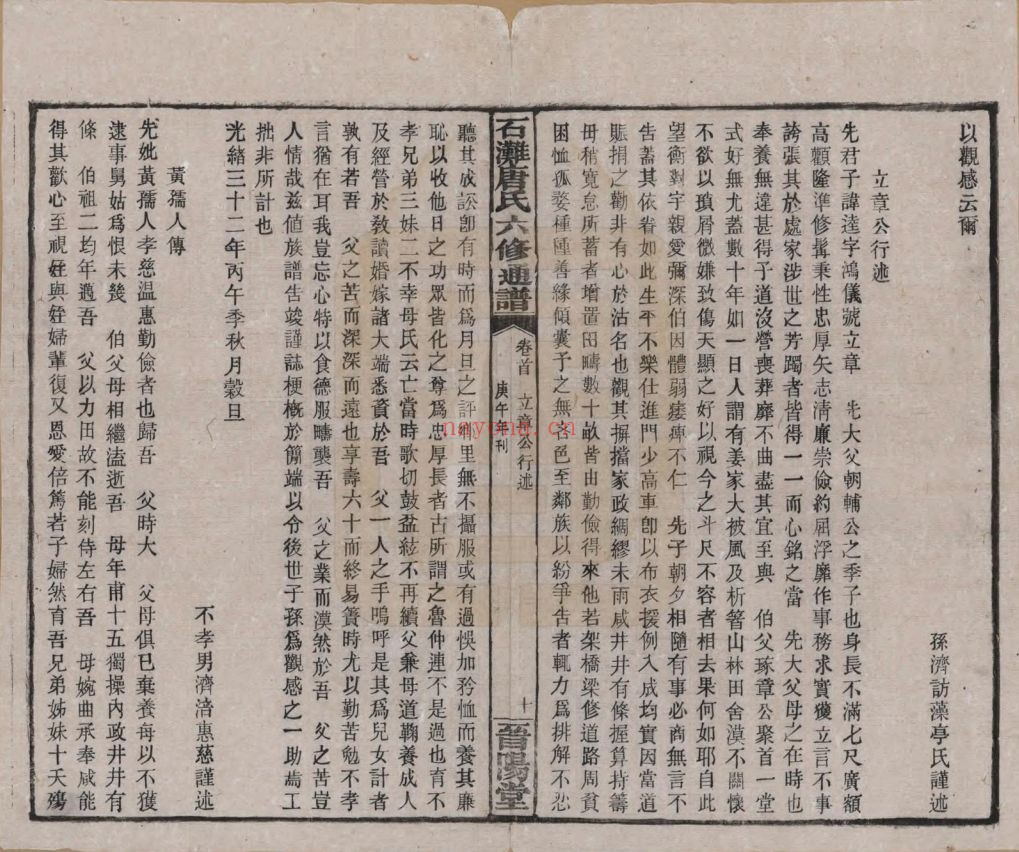 以觀感云爾
孫濟訪藻亭氏謹述
立章公行述
先君子諱逵字鴻儀號立章 先大父朝輔公之季子也身長不滿七尺廣額
高顴隆準修髯秉性忠厚矢志清廉崇儉約屈浮靡作事務求實獲立言不事
誇張其於處家涉世之芳躅者皆得一一而心銘之當 先大父母之在時也
奉養無違甚得子道沒營喪葬靡不曲盡其宜至與 伯父琢章公聚首一堂
式好無尤蓋數十年如一日人謂有姜家大被風及析箸山林田舍漠不關懷
不欲以瑣屑微嫌致傷天顯之好以視今之斗尺不容者相去果何如耶自此
望衡對宇親愛彌深伯因體弱痿痺不仁 先子朝夕相隨有事必商無言不
告蓋其依眷如此生平不樂仕進門少高車卽以布衣援例入成均實因當道
賑捐之勸非有心於沽名也觀其摒擋家政綢繆未雨咸井井有條握算持籌
毋稍寬怠所蓄者增置田疇數十畝皆由勤儉得來他若架橋梁修道路周貧
困恤孤嫠種種善緣傾囊予之無吝色至鄰族以紛爭告者輒力爲排解不忍
聽其成訟卽有時而爲月旦之評鄉里無不攝服或有過悞加矜恤而養其廉
恥以收他日之功眾皆化之尊爲忠厚長者古所謂之魯仲連不是過也育不
孝兄弟三妹二不幸母氏云亡當時歌切鼓盆絃不再續父兼母道鞠養成人
及經營於教讀婚嫁諸大端悉資於吾 父一人之手嗚呼是其爲兒女計者
孰有若吾 父之苦而深深而遠也享壽六十而終易簀時尤以勤苦勉不孝
言猶在耳我豈忘心特以食德服疇襲吾 父之業而漠然於吾 父之苦豈
人情哉茲値族譜告竣謹誌梗概於簡端以令後世子孫爲觀感之一助耑工
拙非所計也
光緒三十二年丙午季秋月穀旦
不孝男濟湆惠慈謹述
黃孺人傳
先妣黃孺人孝慈温惠勤儉者也歸吾 父時大 父母俱已棄養每以不獲
逮事舅姑爲恨未幾 伯父母相繼溘逝吾 母年甫十五獨操內政井井有
條 伯祖二均年邁吾 父以力田故不能刻侍左右吾 母婉曲承奉咸能
得其歡心至視姪與姪婦輩復又恩愛倍篤若子婦然育吾兄弟姊妹十夭殤
石灘唐氏六修通譜
卷首 立章公行述
庚午年刊
十
晉陽堂
nayona.cn